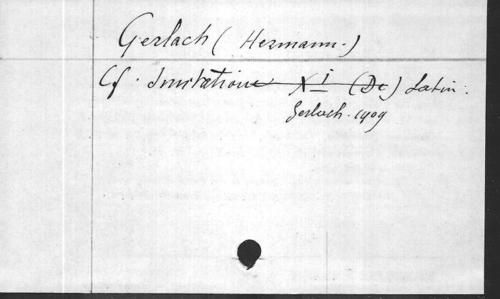 Gerlach (Hermann.)
Cf. Imitatione Xi (De) Latin.
Gerlach. 1909